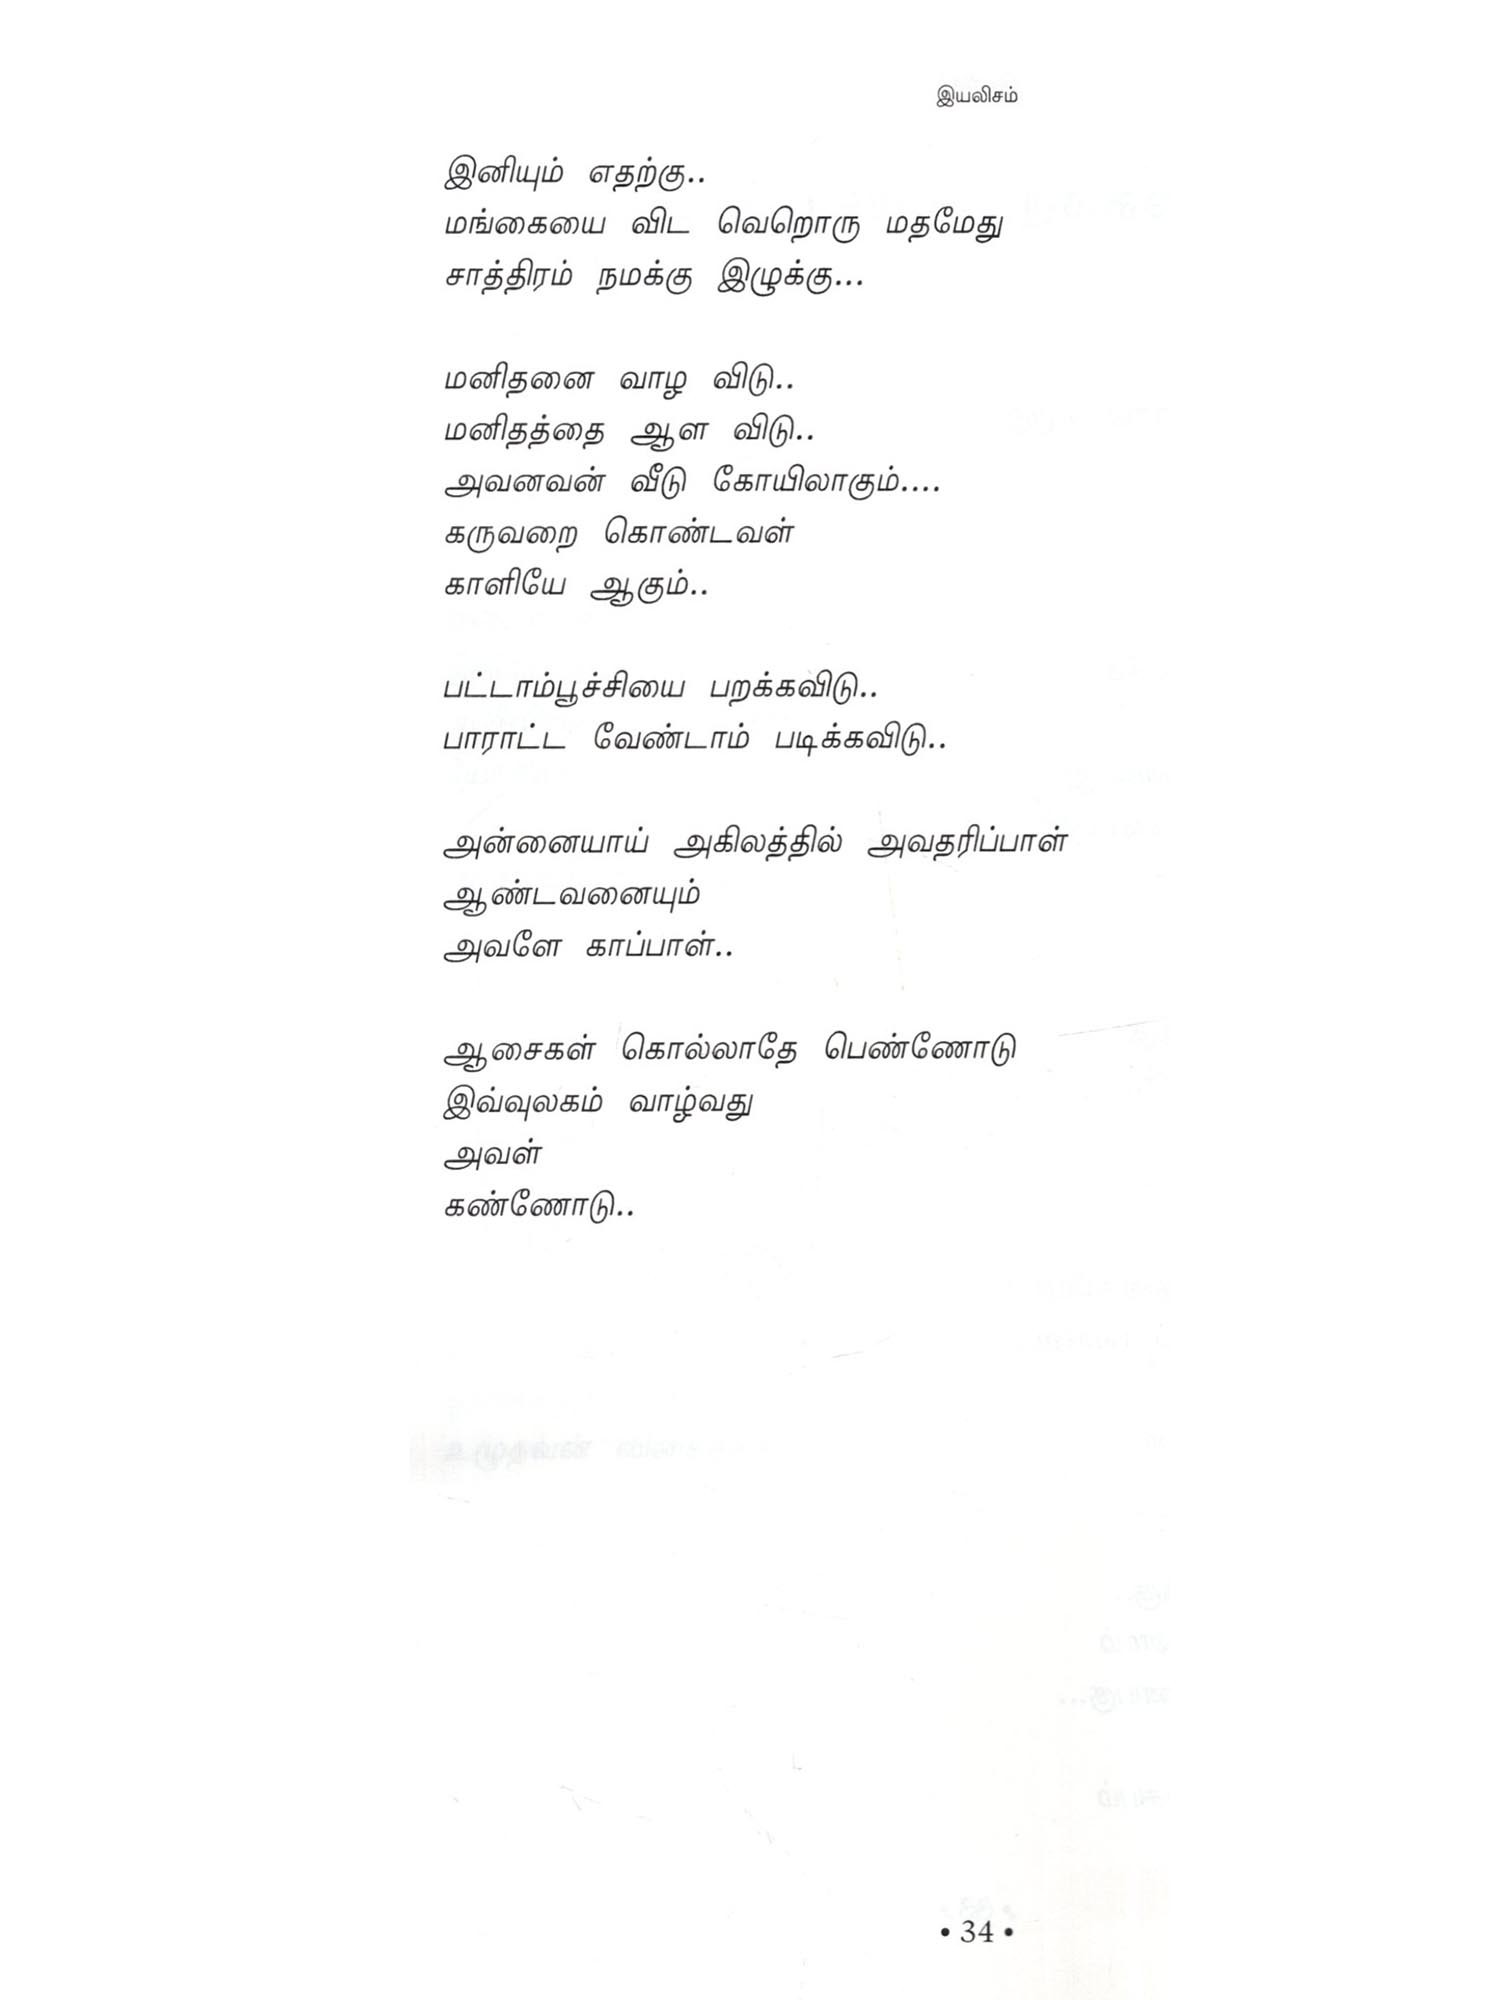 இயலிசம்
இனியும் எதற்கு..
மங்கையை விட வெறொரு மதமேது
சாத்திரம் நமக்கு இழுக்கு...
மனிதனை வாழ விடு..
மனிதத்தை ஆள விடு..
அவனவன் வீடு கோயிலாகும்....
கருவறை கொண்டவள்
காளியே ஆகும்..
பட்டாம்பூச்சியை பறக்கவிடு..
பாராட்ட வேண்டாம் படிக்கவிடு..
அன்னையாய் அகிலத்தில் அவதரிப்பாள்
ஆண்டவனையும்
அவளே காப்பாள்..
ஆசைகள் கொல்லாதே பெண்ணோடு
இவ்வுலகம் வாழ்வது
அவள்
கண்ணோடு..
• 34 •